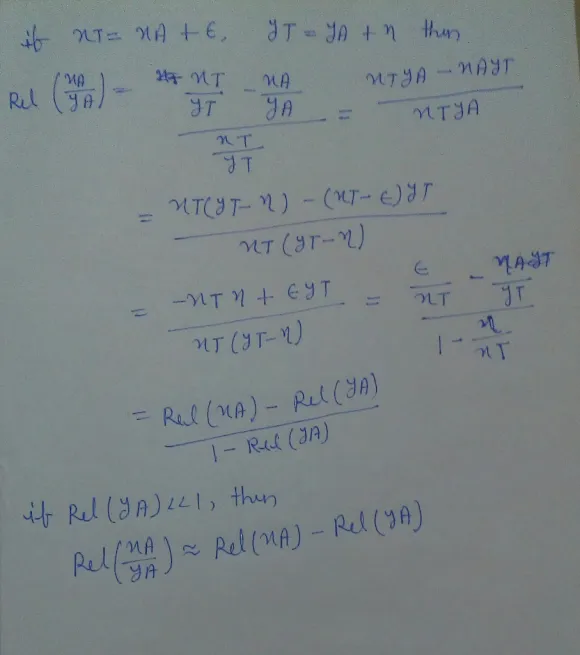 if xT = xA + ϵ, yT = yA + η then
Rel (xA/yA) = (xT/yT - xA/yA)/(xT/yT) = (xTyA - xAyT)/(xTyA)
= (xT(yT-η) - (xT-ϵ)yT)/(xT(yT-η))
= (-xTη + ϵyT)/(xT(yT-η)) = (ϵ/xT - ηAyT/yT)/(1 - η/xT)
= (Rel(xA) - Rel(yA))/(1 - Rel(yA))
if Rel(yA) <<1, then
Rel(xA/yA) ≈ Rel(xA) - Rel(yA)